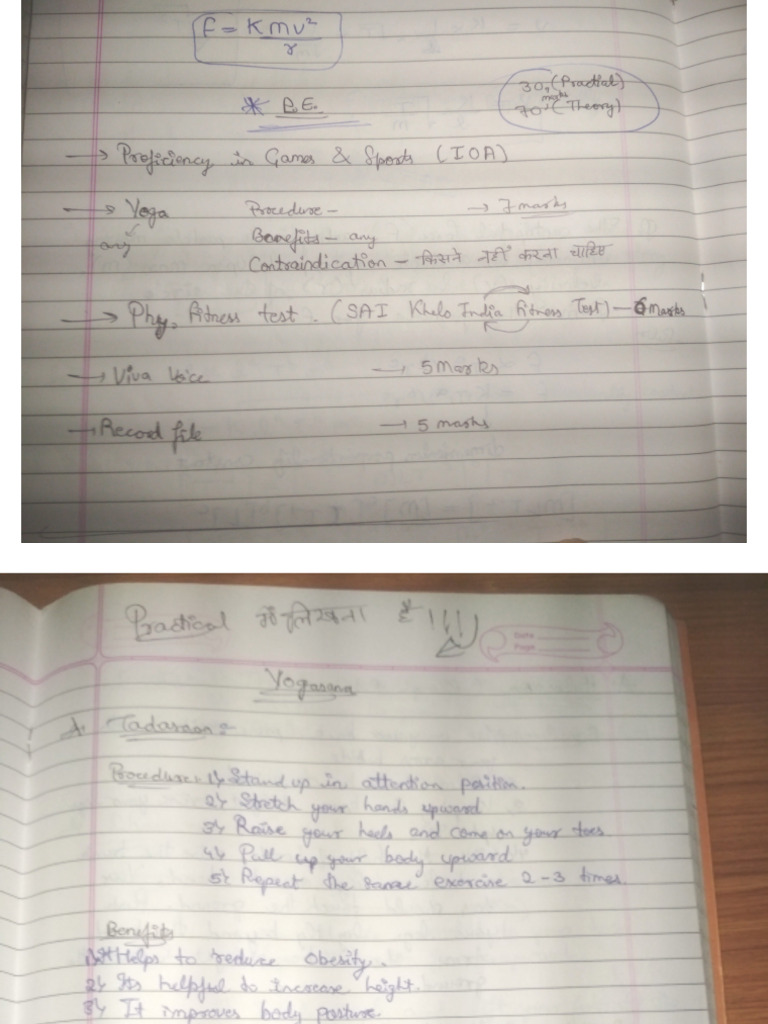 F = K mv²
r
30, (Practial)
marks
70, (Theory)
* P.E.
→ Proficiency in Games & Sports (IOA)
→ Yoga Procedure – → 7 marks
any Benefits – any
Contraindication – किसने नहीं करना चाहिए
→ Phy. fitness test. (SAI Khelo India Fitness Test) – 6 marks
→ Viva Voice → 5 marks
→ Record file → 5 marks
Practical में लिखना है !!!!
Date
Page
Yogasana
1. Tadasan :-
Procedure :- 1) Stand up in attention position.
2) Stretch your hands upward
3) Raise your heels and come on your toes
4) Pull up your body upward
5) Repeat the same exercise 2-3 times.
Benefits
1) Helps to reduce obesity.
2) Its helpful to increase height.
3) It improves body posture.